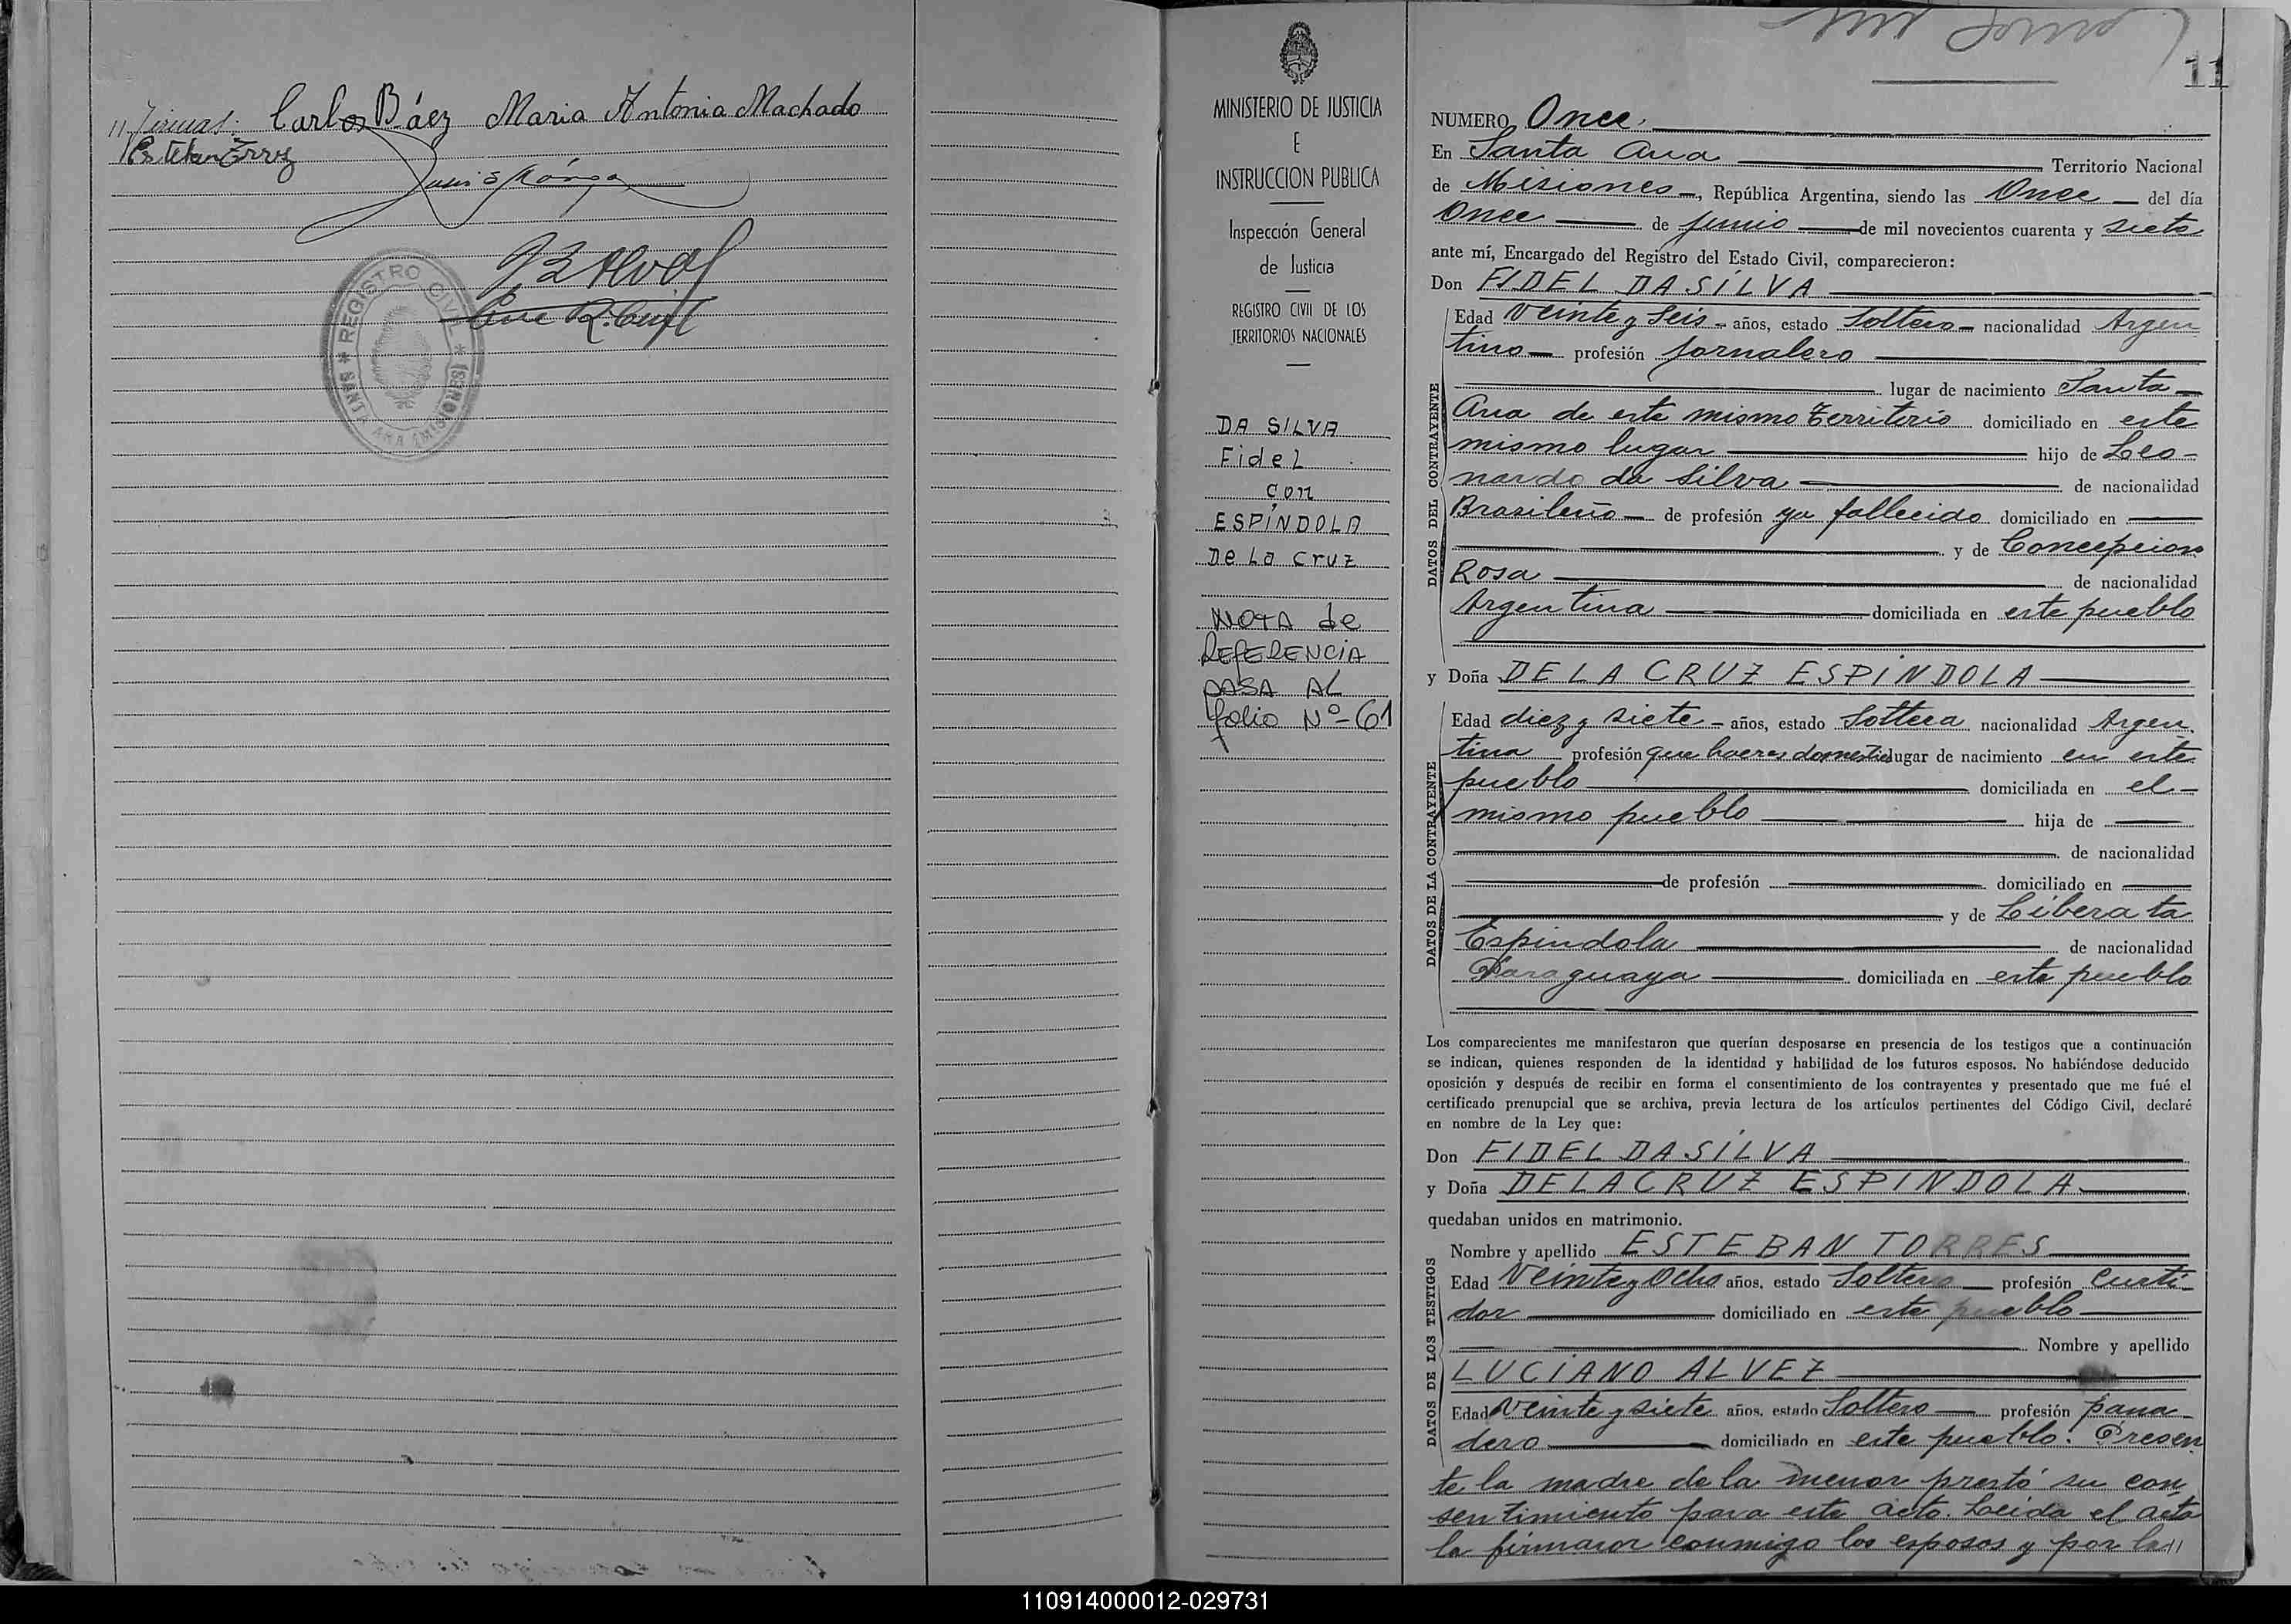 11 firmas: Carlos Báez Maria Antonia Machado
REGISTRO CIVIL
SANTA ANA (MISIONES)
MINISTERIO DE JUSTICIA
E
INSTRUCCION PUBLICA
Inspección General
de Justicia
REGISTRO CIVIL DE LOS
TERRITORIOS NACIONALES
DA SILVA
Fidel
con
ESPÍNDOLA
De La Cruz
NOTA de
REFERENCIA
PASA AL
folio Nº-61
11
NUMERO Once.
En Santa Ana Territorio Nacional
de Misiones, República Argentina, siendo las Once del día
Once de junio de mil novecientos cuarenta y siete
ante mí, Encargado del Registro del Estado Civil, comparecieron:
Don FIDEL DA SILVA
DATOS DEL CONTRAYENTE
Edad Veinte y Seis años, estado Soltero nacionalidad Argen
tino profesión jornalero
lugar de nacimiento Santa
Ana de este mismo Territorio domiciliado en este
mismo lugar hijo de Leo-
nardo da Silva de nacionalidad
Brasileño de profesión ya fallecido domiciliado en
y de Concepcion
Rosa de nacionalidad
Argentina domiciliada en este pueblo
y Doña DE LA CRUZ ESPÍNDOLA
DATOS DE LA CONTRAYENTE
Edad diez y siete años, estado Soltera nacionalidad Argen
tina profesión que haceres domestico lugar de nacimiento en este
pueblo domiciliada en el
mismo pueblo hija de
de nacionalidad
de profesión domiciliado en
y de Liberata
Espindola de nacionalidad
Paraguaya domiciliada en este pueblo
Los comparecientes me manifestaron que querían desposarse en presencia de los testigos que a continuación
se indican, quienes responden de la identidad y habilidad de los futuros esposos. No habiéndose deducido
oposición y después de recibir en forma el consentimiento de los contrayentes y presentado que me fué el
certificado prenupcial que se archiva, previa lectura de los artículos pertinentes del Código Civil, declaré
en nombre de la Ley que:
Don FIDEL DA SILVA
y Doña DE LA CRUZ ESPINDOLA
quedaban unidos en matrimonio.
DATOS DE LOS TESTIGOS
Nombre y apellido ESTEBAN TORRES
Edad Veinte y Ocho años, estado Soltero profesión Curti
dor domiciliado en este pueblo
Nombre y apellido
LUCIANO ALVEZ
Edad Veinte y siete años, estado Soltero profesión pana
dero domiciliado en este pueblo. Presen
te la madre de la menor prestó su con
sentimiento para este acto. Leida el acta
la firmaron conmigo los esposos y por la 11
110914000012-029731